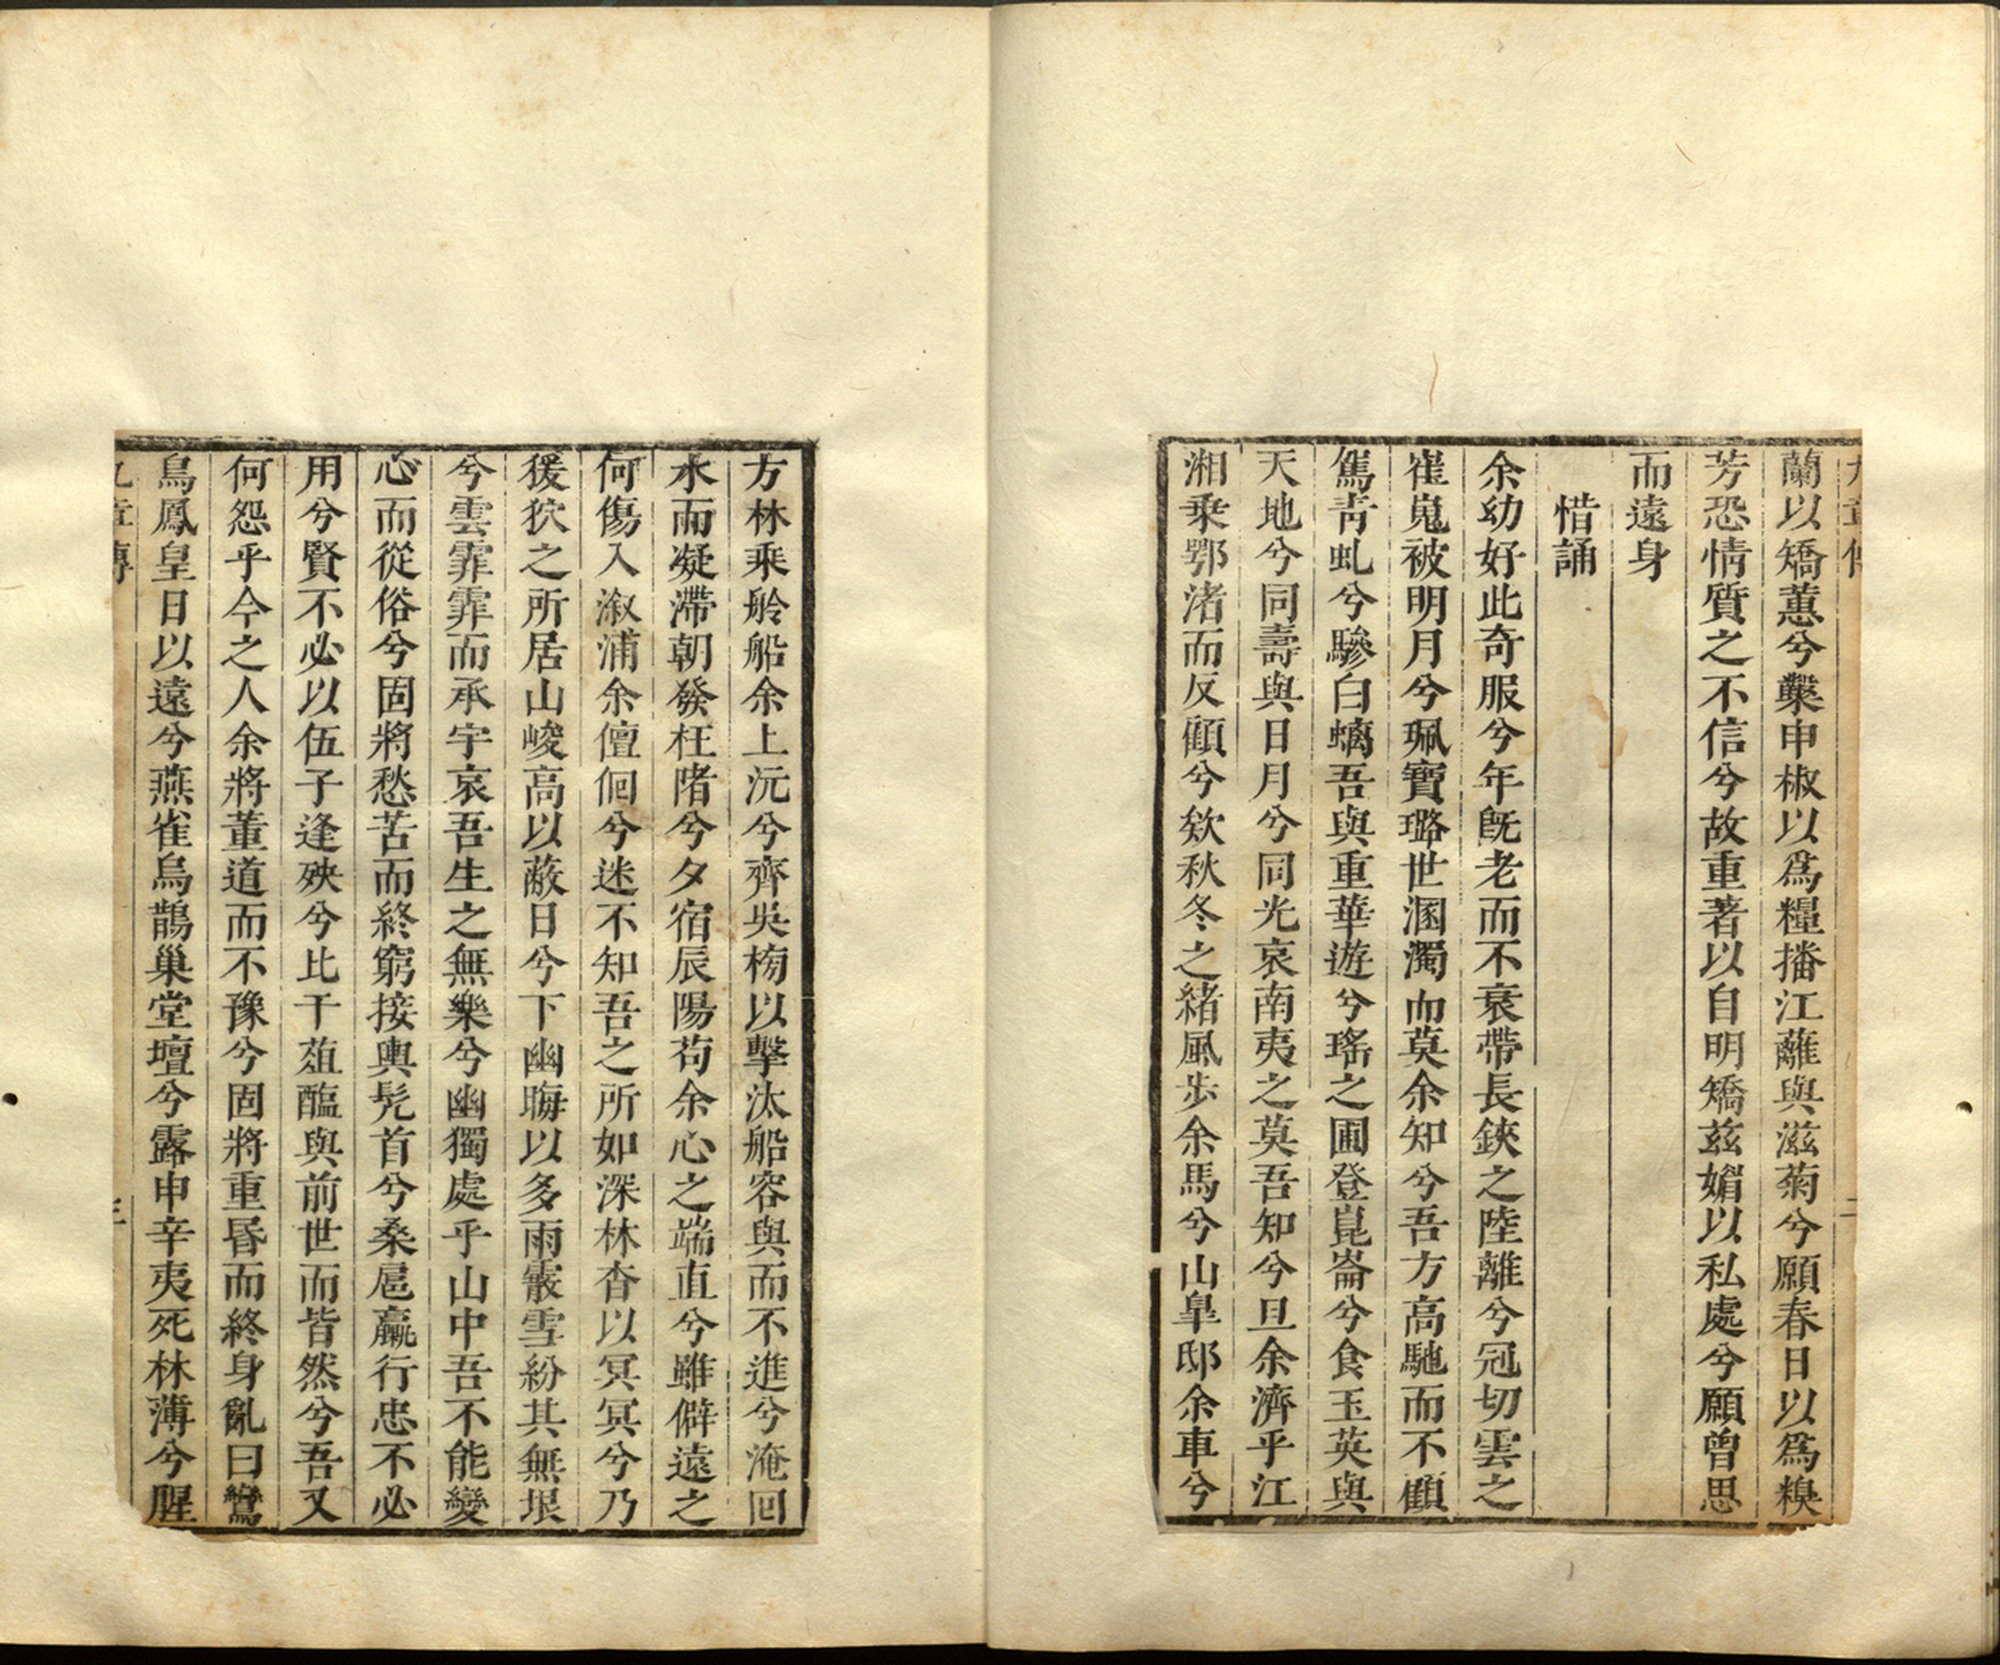 九章傳
二
蘭以矯蕙兮糳申椒以爲糧播江蘺與滋菊兮願春日以爲糗
芳恐情質之不信兮故重著以自明矯茲媚以私處兮願曾思
而遠身
惜誦
余幼好此奇服兮年旣老而不衰帶長鋏之陸離兮冠切雲之
崔嵬被明月兮珮寶璐世溷濁而莫余知兮吾方高馳而不顧
駕靑虬兮驂白螭吾與重華遊兮瑤之圃登崑崙兮食玉英與
天地兮同壽與日月兮同光哀南夷之莫吾知兮旦余濟乎江
湘乘鄂渚而反顧兮欸秋冬之緖風步余馬兮山皐邸余車兮
方林乘舲船余上沅兮齊吳榜以擊汰船容與而不進兮淹回
水而凝滯朝發枉陼兮夕宿辰陽苟余心之端直兮雖僻遠之
何傷入溆浦余儃佪兮迷不知吾之所如深林杳以冥冥兮乃
猨狖之所居山峻高以蔽日兮下幽晦以多雨霰雪紛其無垠
兮雲霏霏而承宇哀吾生之無樂兮幽獨處乎山中吾不能變
心而從俗兮固將愁苦而終窮接輿髠首兮桑扈臝行忠不必
用兮賢不必以伍子逢殃兮比干菹醢與前世而皆然兮吾又
何怨乎今之人余將董道而不豫兮固將重昏而終身亂曰鸞
鳥鳳皇日以遠兮燕雀烏鵲巢堂壇兮露申辛夷死林薄兮腥
九章傳
三